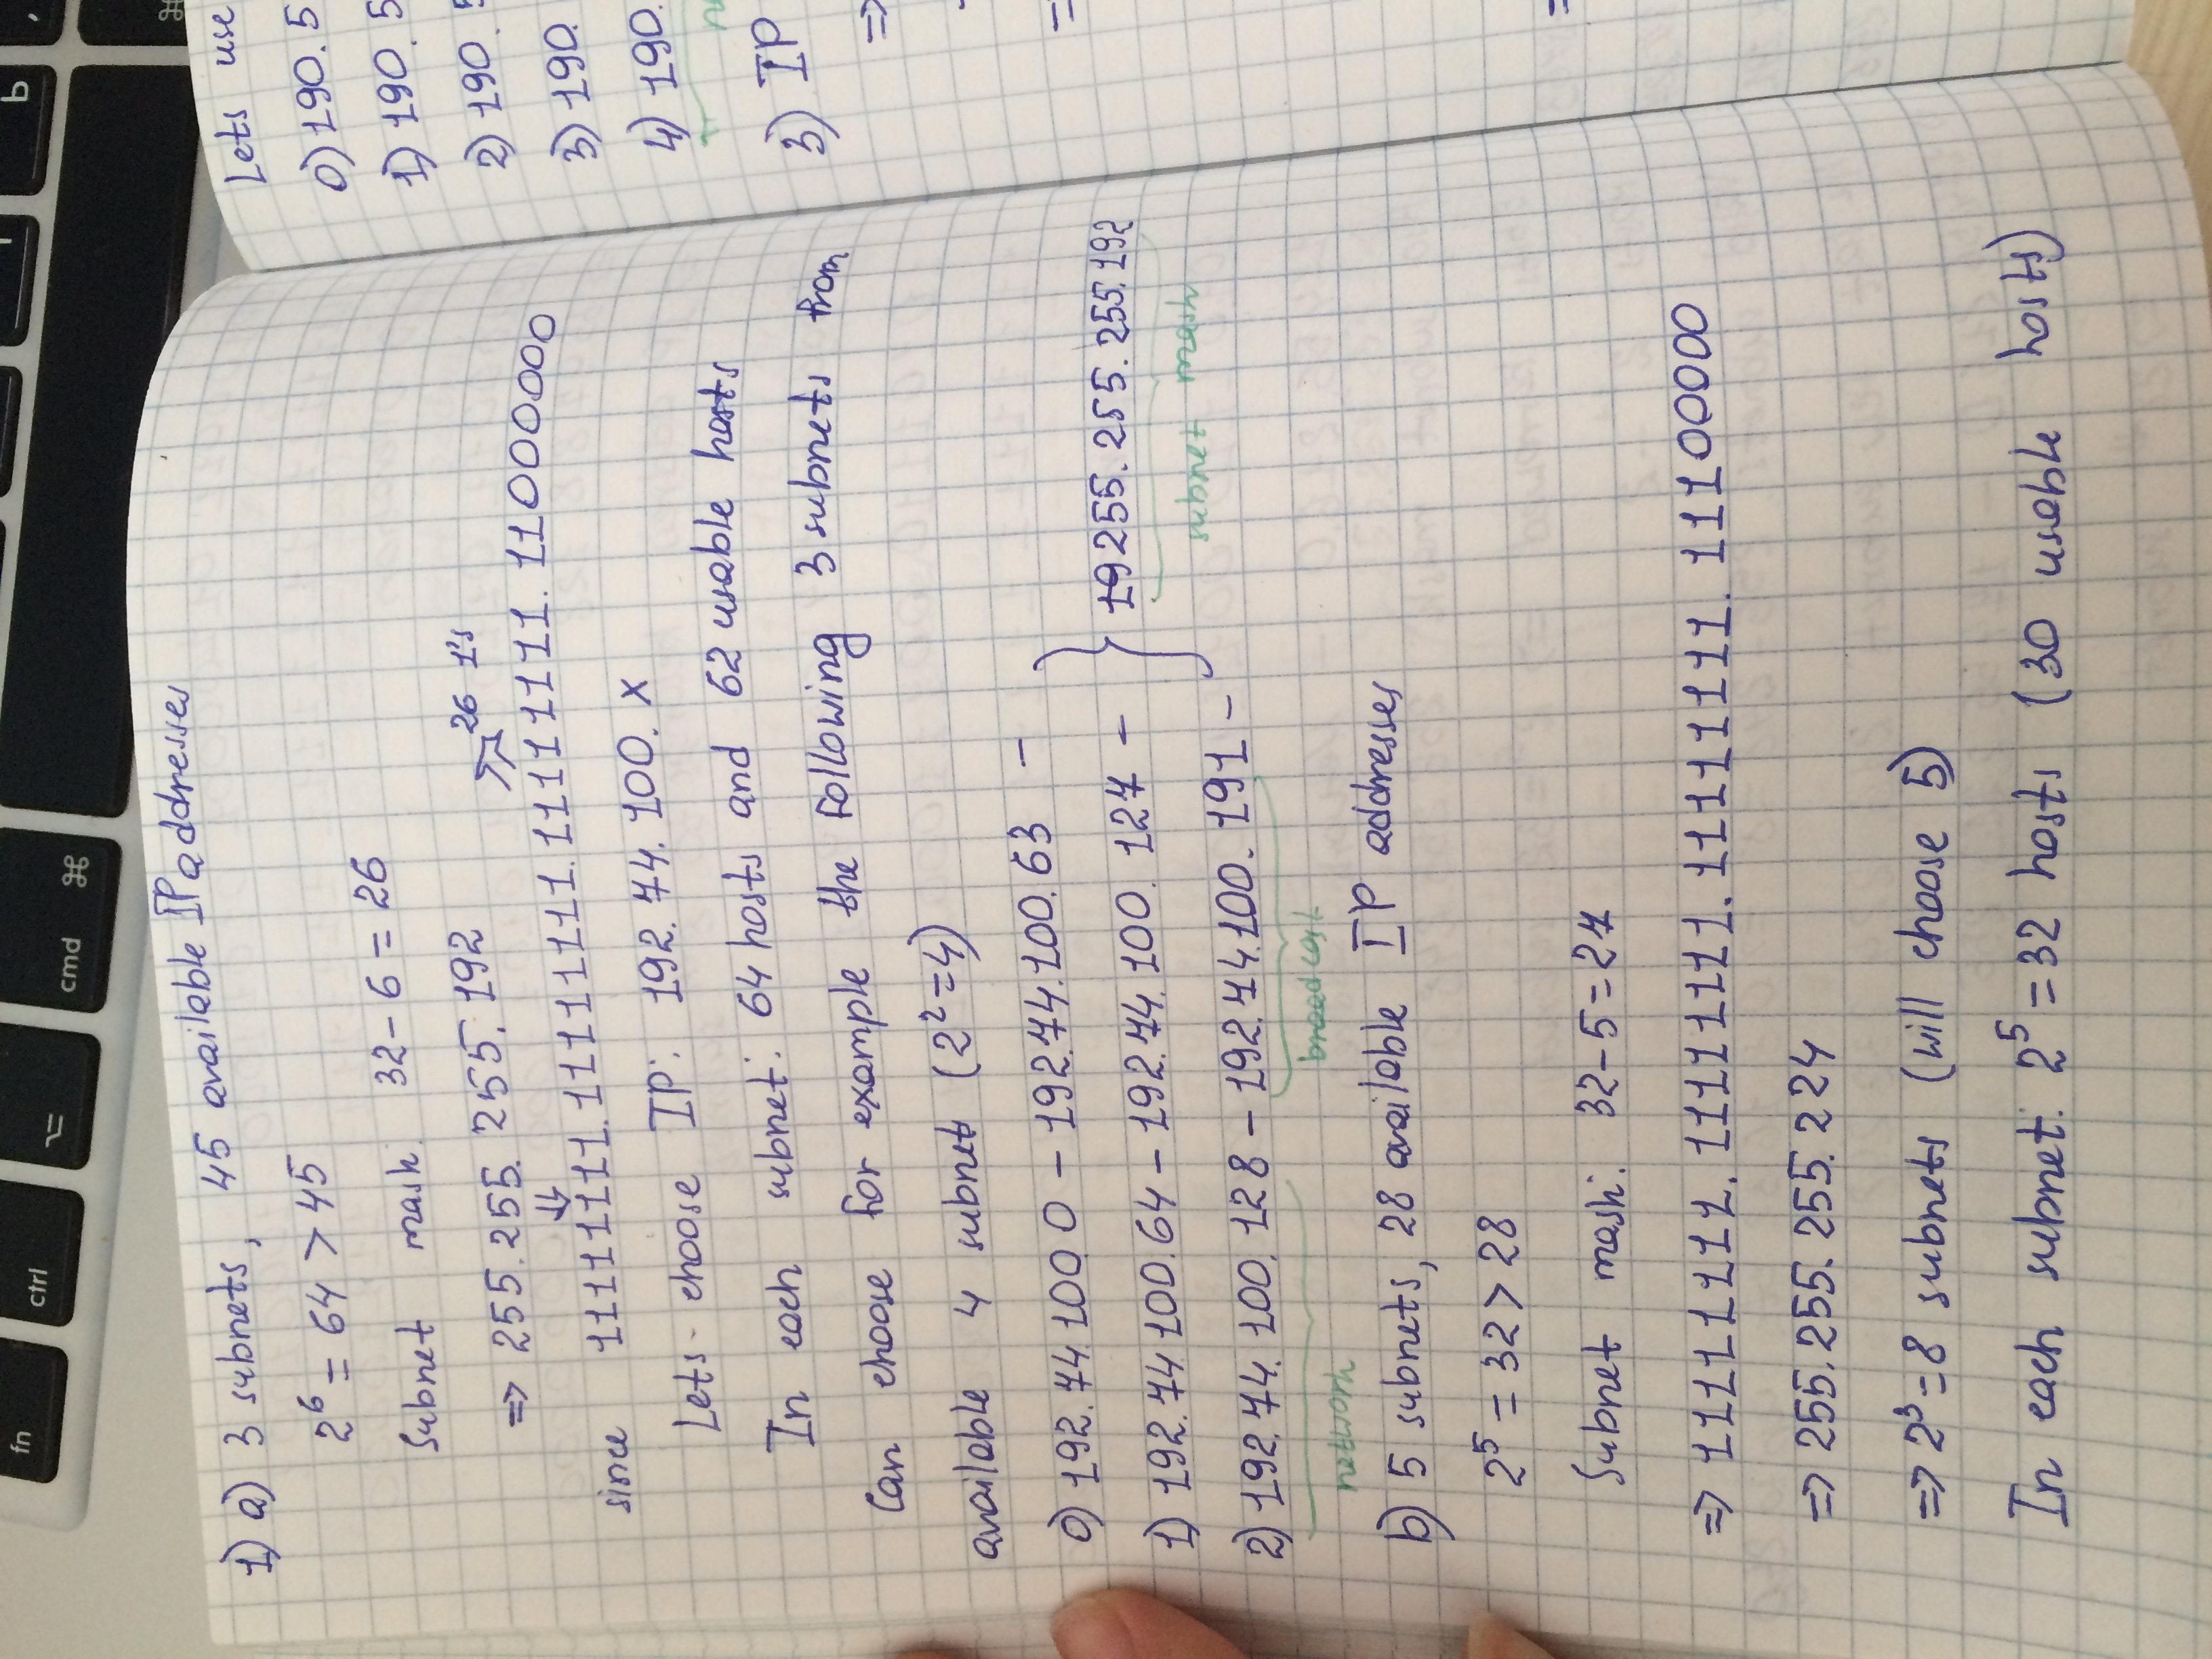 fn ctrl ⌥ cmd ⌘ Ь ⌘
1) a) 3 subnets, 45 available IP addresses
2^6 = 64 > 45
Subnet mask: 32 - 6 = 26
=> 255.255.255.192
26 1's
since 11111111.11111111.11111111.11000000
Lets choose IP: 192.74.100.x
In each subnet: 64 hosts and 62 usable hosts
Can choose for example the following 3 subnets from
available 4 subnet (2^2=4)
0) 192.74.100.0 - 192.74.100.63 -
1) 192.74.100.64 - 192.74.100.127 -
19 255.255.255.192
subnet mask
2) 192.74.100.128 - 192.74.100.191 -
network broadcast
b) 5 subnets, 28 available IP addresses
2^5 = 32 > 28
Subnet mask: 32-5=27
=> 11111111.11111111.11111111.11100000
=> 255.255.255.224
=> 2^3=8 subnets (will choose 5)
In each subnet: 2^5=32 hosts (30 usable hosts)
Lets use
0) 190.5
1) 190.5
2) 190.5
3) 190.
4) 190.
3) IP
=>